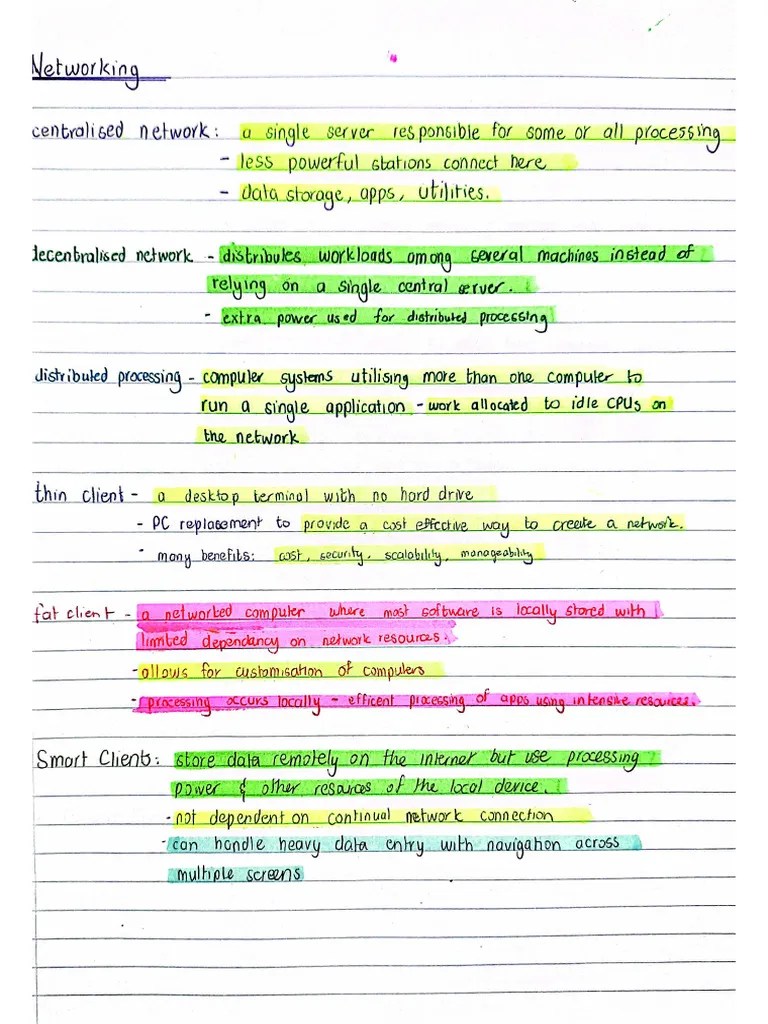 Networking
centralised network: a single server responsible for some or all processing
- less powerful stations connect here
- data storage, apps, utilities.
decentralised network - distributes workloads among several machines instead of
relying on a single central server.
- extra power used for distributed processing
distributed processing - computer systems utilising more than one computer to
run a single application - work allocated to idle CPUs on
the network
thin client - a desktop terminal with no hard drive
- PC replacement to provide a cost effective way to create a network.
- many benefits: cost, security, scalability, manageability
fat client - a networked computer where most software is locally stored with
limited dependancy on network resources.
- allows for customisation of computers
- processing occurs locally - efficent processing of apps using intensive resources.
Smart Client: store data remotely on the internet but use processing
power & other resources of the local device.
- not dependent on continual network connection
- can handle heavy data entry with navigation across
multiple screens